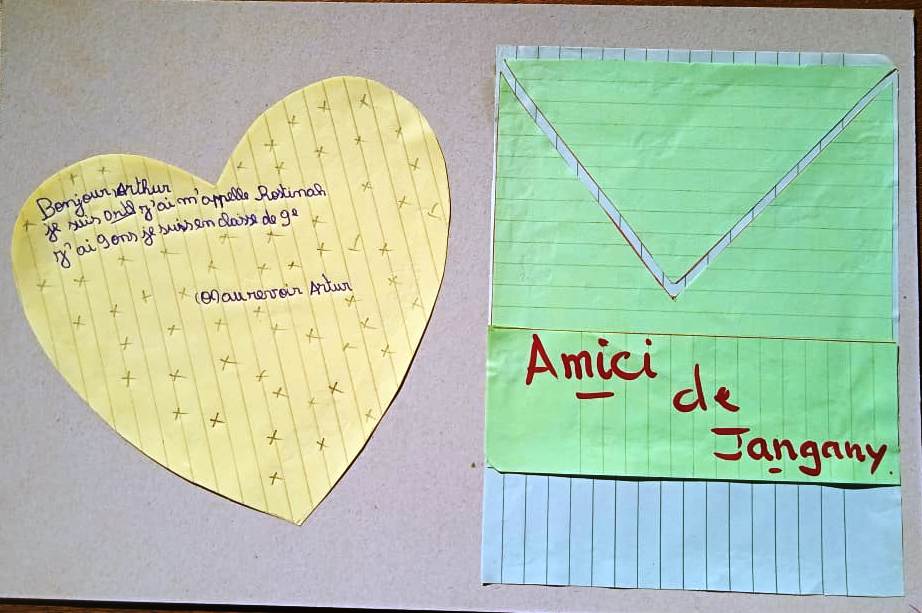 Bonjour Arthur
je suis y'ai m'appelle Rostinah
y'ai 9ons je suis en classe de 9e
au revoir Artur
Amici
de
Jangany.